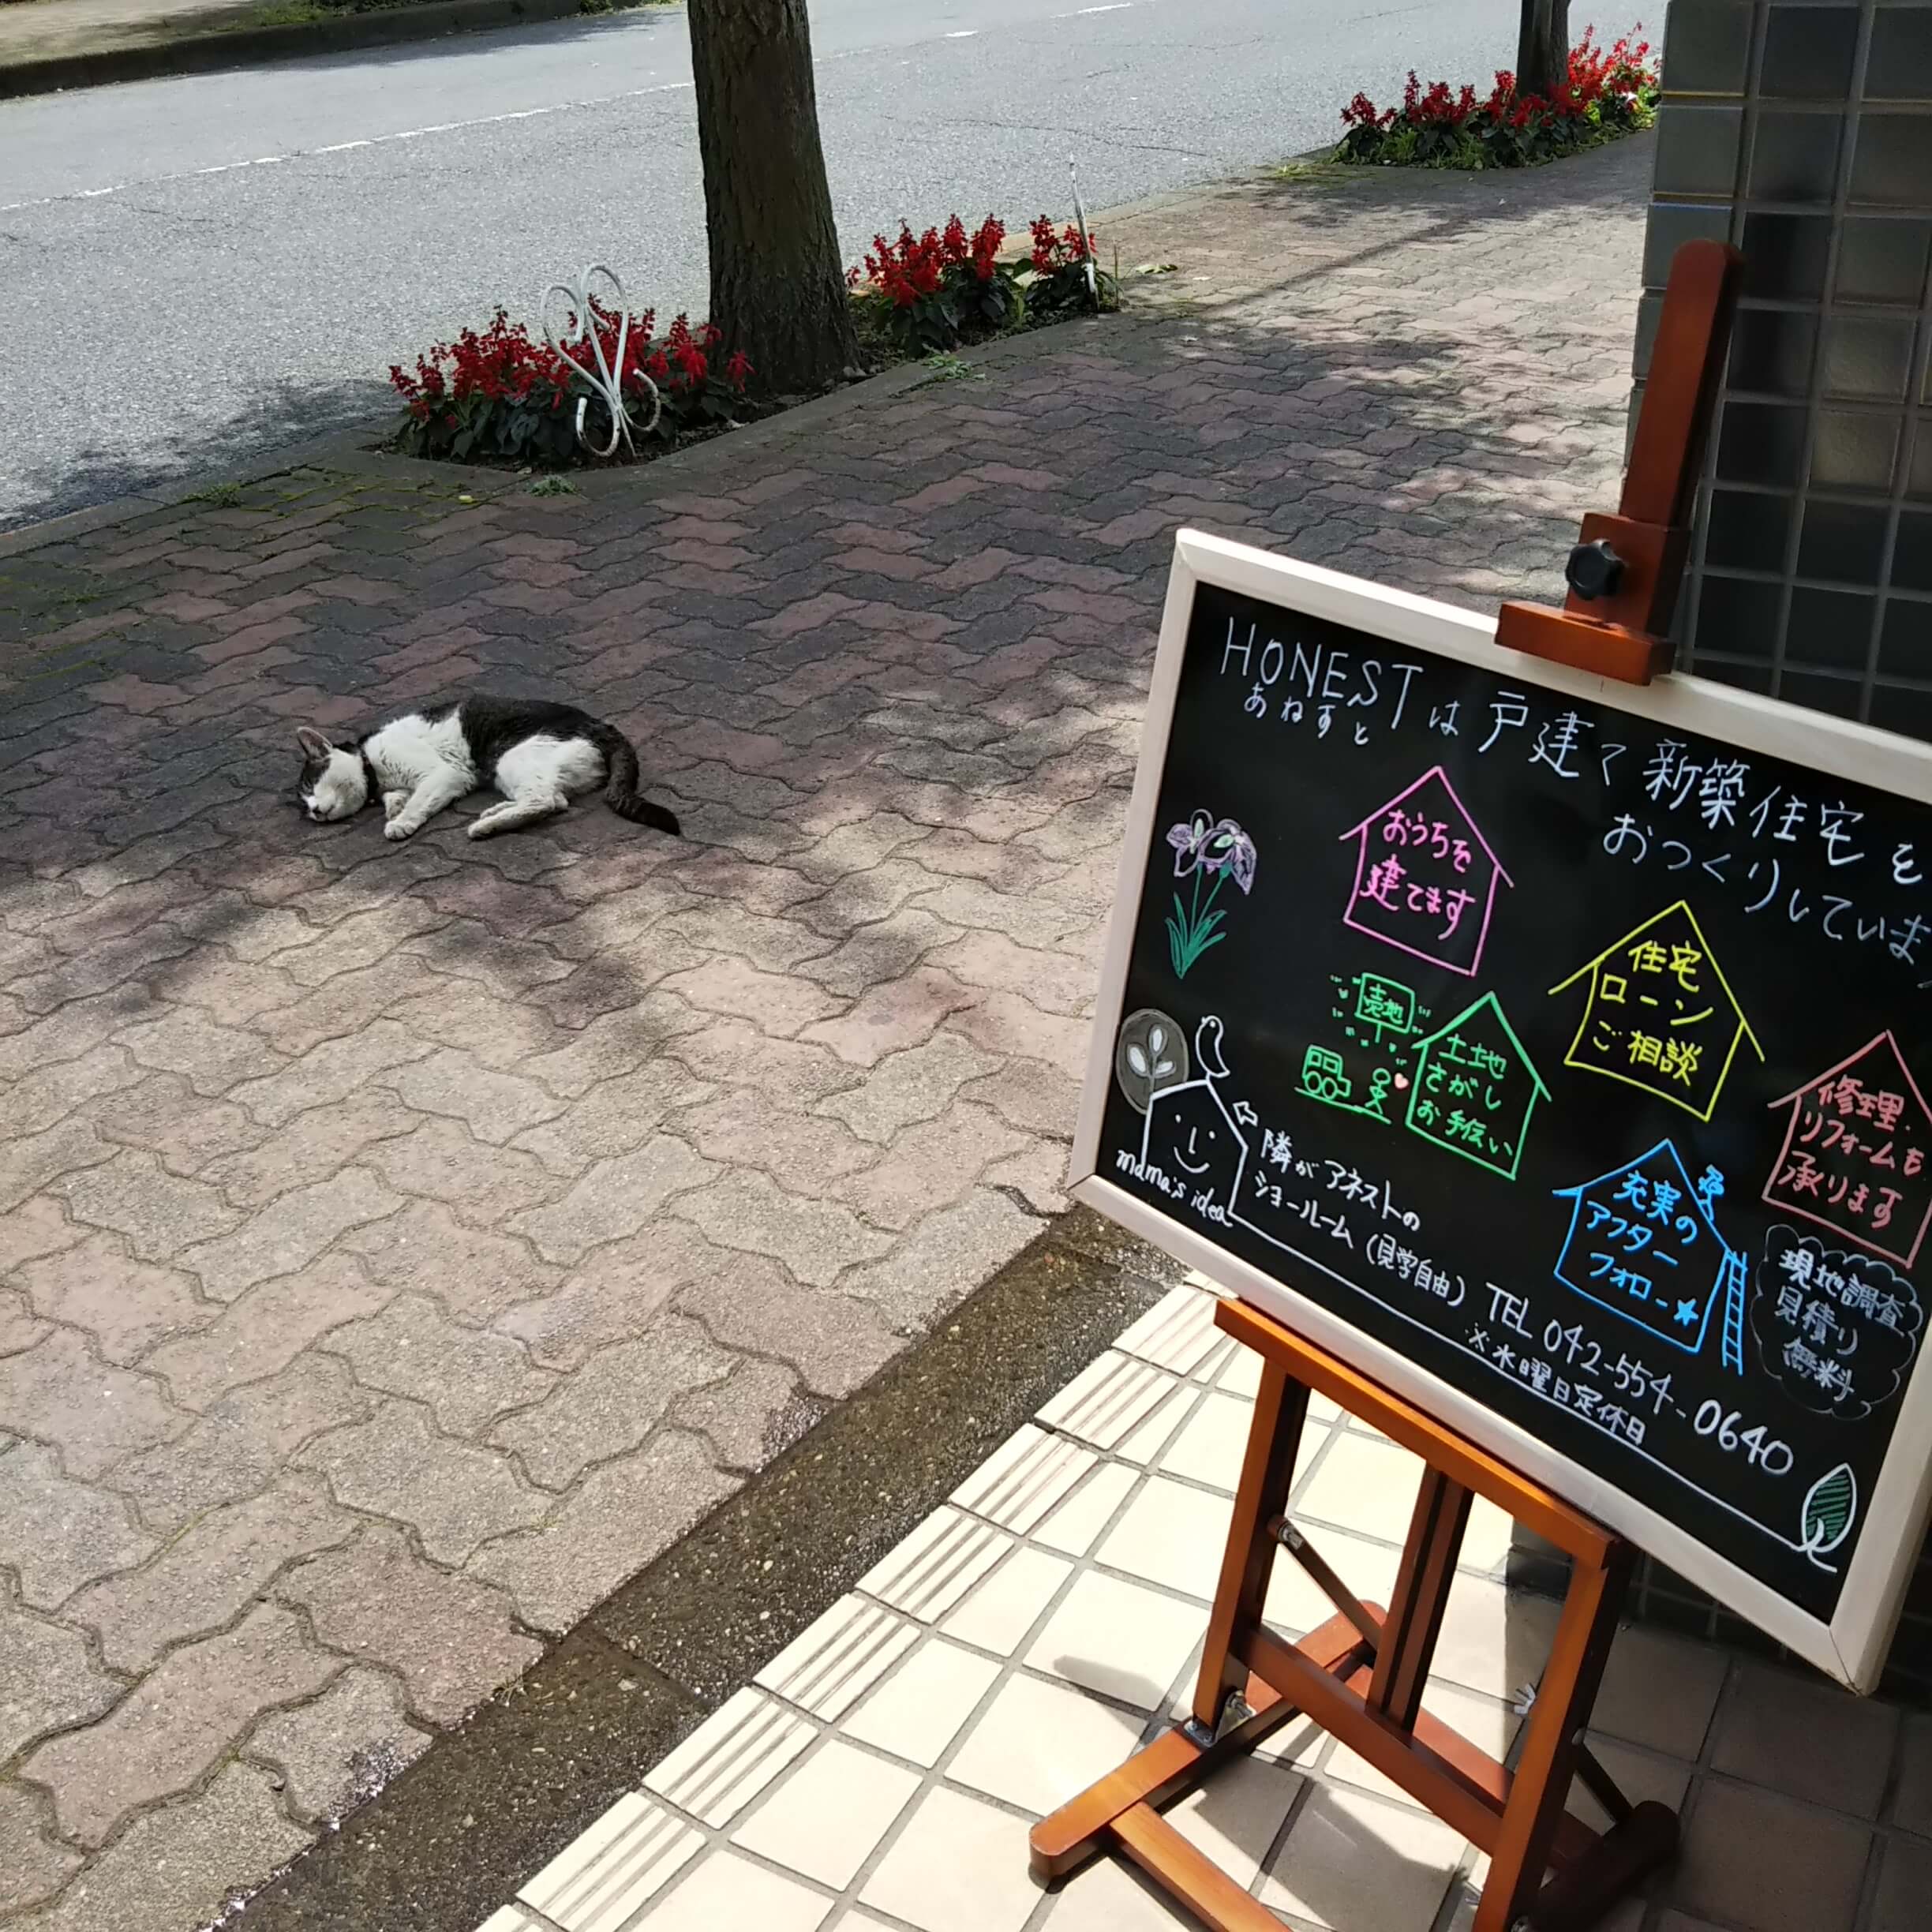 HONESTは戸建て新築住宅を
あねすと
おつくりしていま
おうちを
建てます
住宅
ローン
ご相談
売地
土地
さがし
お手伝い
修理.
リフォームも
承ります
充実の
アフター
フォロー★
現地調査
見積り
無料
mama's idea
隣がアネストの
ショールーム(見学自由)
TEL 042-554-0640
※水曜日定休日